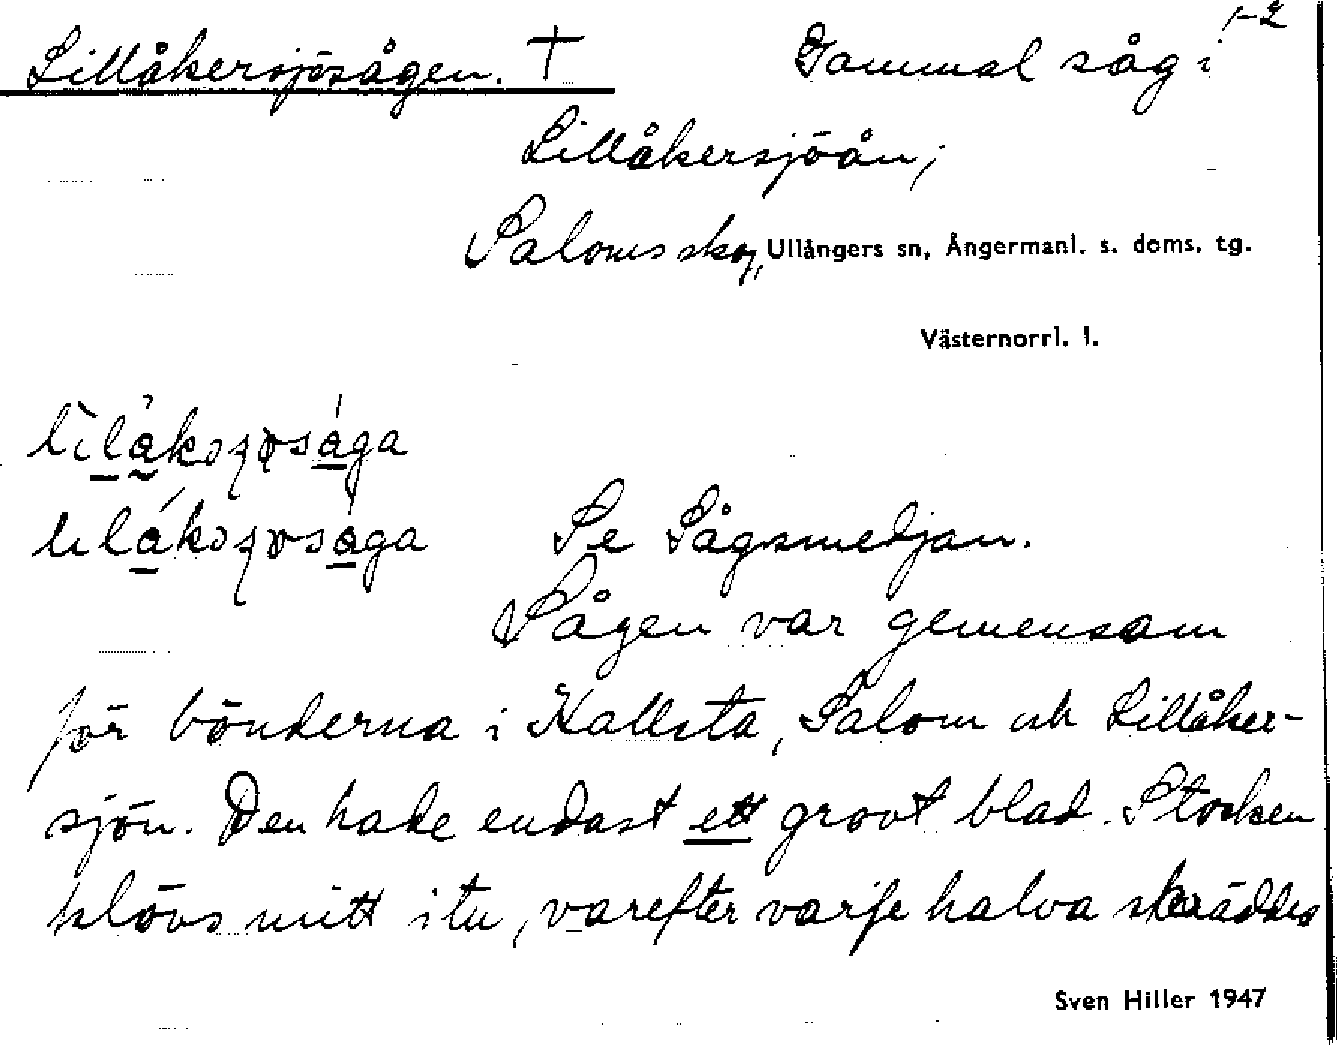 1-2
Lillåkersjösågen. † Gammal såg i
Lillåkersjöån;
Saloms skog, Ullångers sn, Ångermanl. s. doms. tg.
Västernorrl. l.
Se Sågsmedjan.
Sågen var gemensam
för bönderna i Kallsta, Salom och Lillåker-
sjön. Den hade endast ett grovt blad. Stocken
klövs mitt itu, varefter varje halva skräddes
Sven Hiller 1947